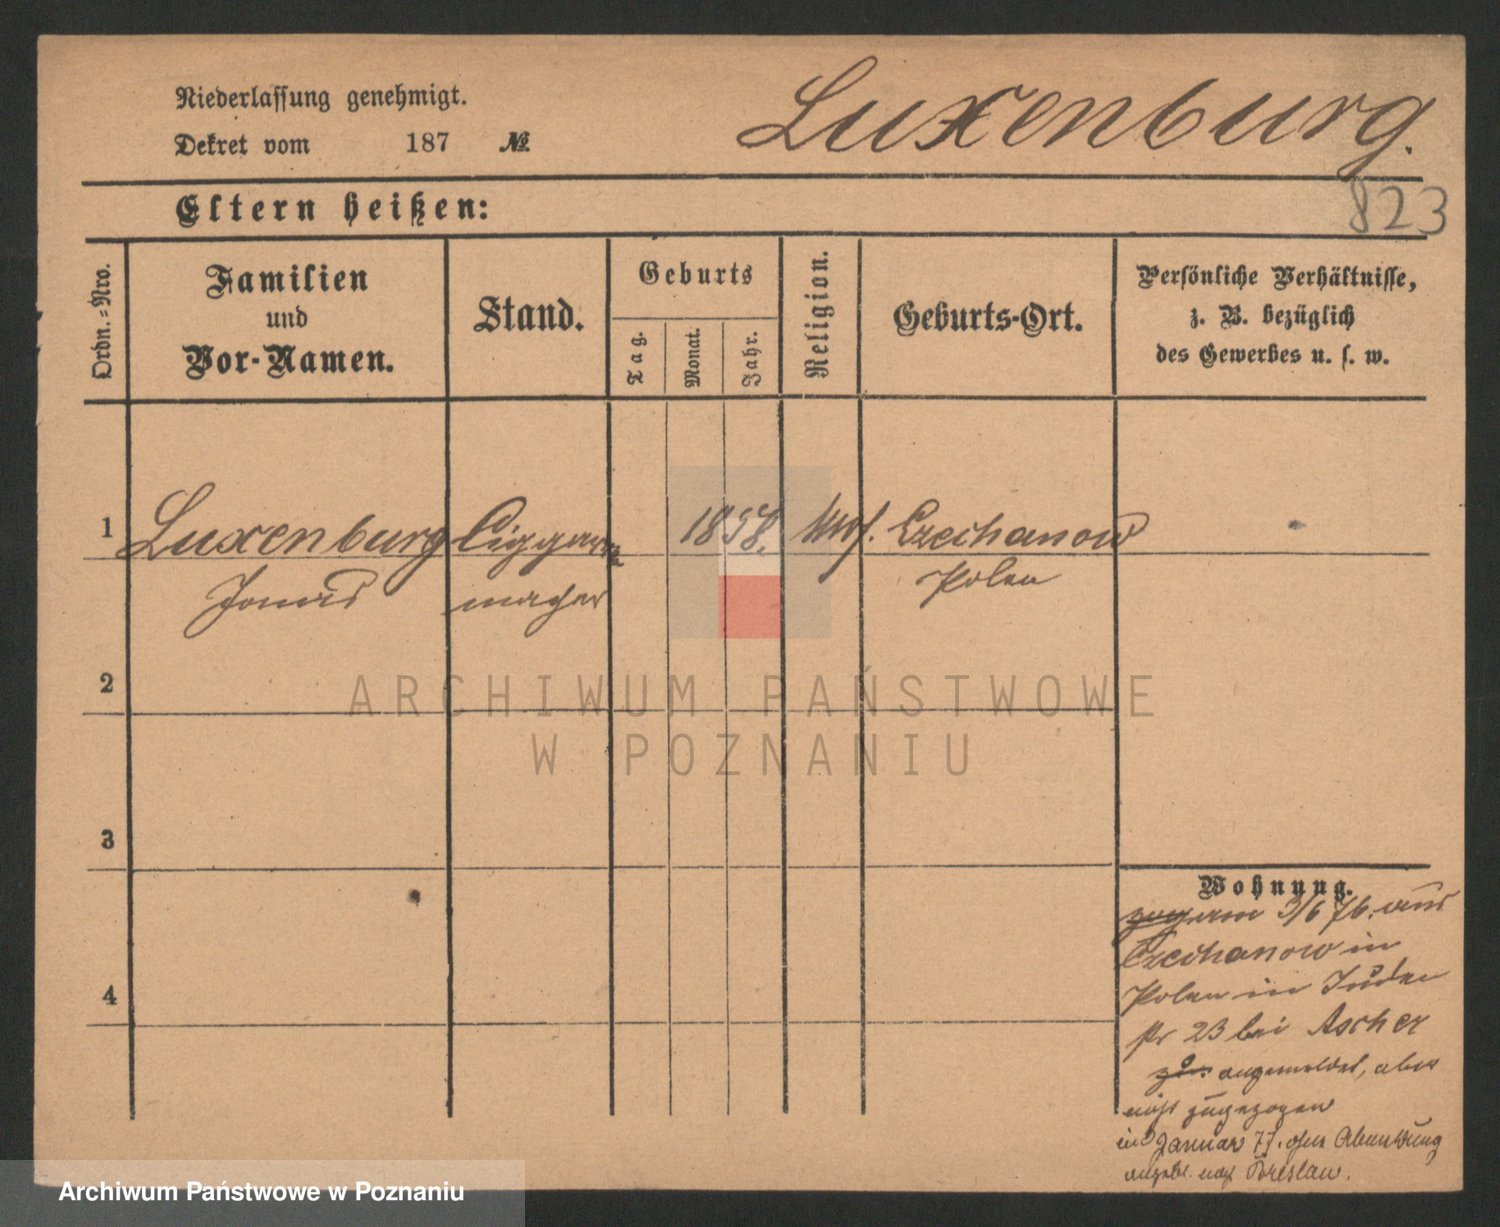 Niederlassung genehmigt.
Dekret vom 187 №
Luxenburg.
823
Eltern heißen:
Ordn.=Nro.
Familien
und
Vor-Namen.
Stand.
Geburts
Tag.
Monat.
Jahr.
Religion.
Geburts-Ort.
Persönliche Verhältnisse,
z. B. bezüglich
des Gewerbes u. s. w.
1 Luxenburg Ciggarrn 1858. Mos. Czechanow
Jonas macher Polen
2
3
4
Wohnung.
zog am 3/6 76. aus
Czechanow in
Polen in Juden
str 23 bei Ascher
zu. angemeldet, aber
nicht zugezogen
in Januar 77. ohne Abmeldung
angebl. nach Breslau.
ARCHIWUM PAŃSTWOWE
W POZNANIU
Archiwum Państwowe w Poznaniu